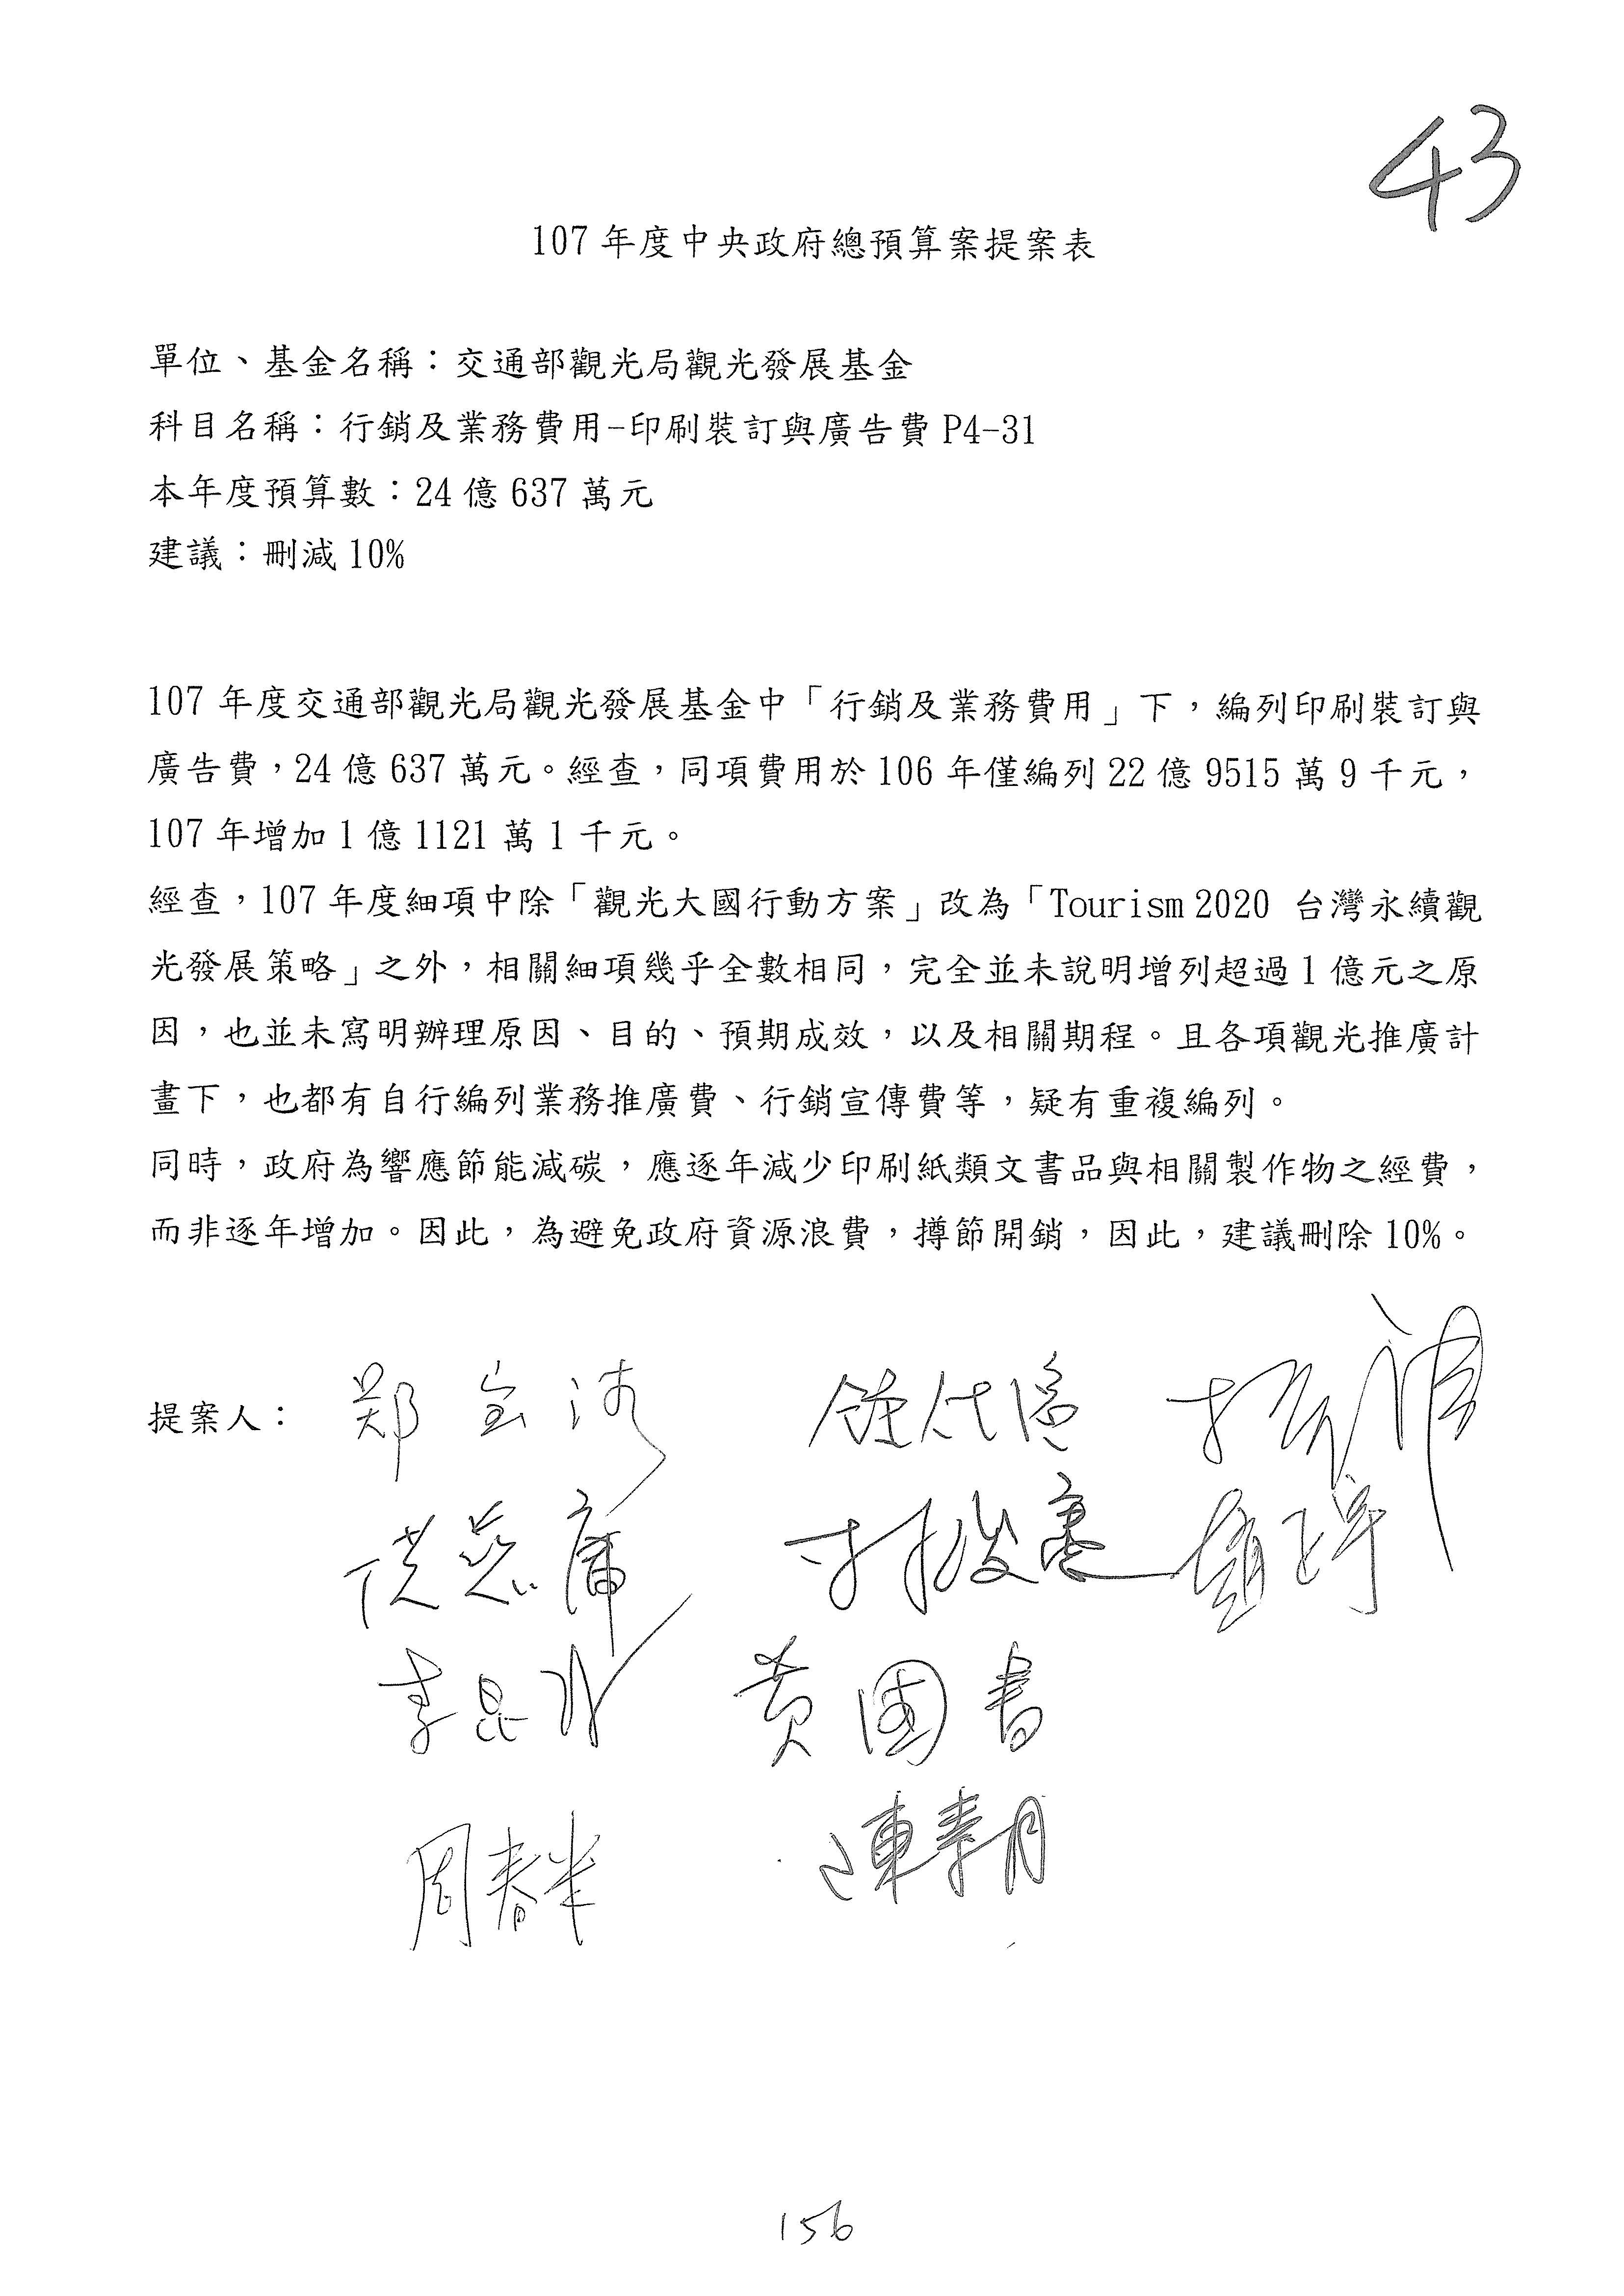 43
107 年度中央政府總預算案提案表
單位、基金名稱：交通部觀光局觀光發展基金
科目名稱：行銷及業務費用-印刷裝訂與廣告費 P4-31
本年度預算數：24 億 637 萬元
建議：刪減 10%
107 年度交通部觀光局觀光發展基金中「行銷及業務費用」下，編列印刷裝訂與
廣告費，24 億 637 萬元。經查，同項費用於 106 年僅編列 22 億 9515 萬 9 千元，
107 年增加 1 億 1121 萬 1 千元。
經查，107 年度細項中除「觀光大國行動方案」改為「Tourism 2020 台灣永續觀
光發展策略」之外，相關細項幾乎全數相同，完全並未說明增列超過 1 億元之原
因，也並未寫明辦理原因、目的、預期成效，以及相關期程。且各項觀光推廣計
畫下，也都有自行編列業務推廣費、行銷宣傳費等，疑有重複編列。
同時，政府為響應節能減碳，應逐年減少印刷紙類文書品與相關製作物之經費，
而非逐年增加。因此，為避免政府資源浪費，撙節開銷，因此，建議刪除 10%。
提案人： 郑宝清
李昆
黃國書
周春米
陳素月
156